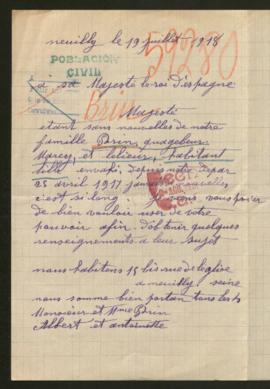 neuilly le 19 juillet 1918
59280
POBLACIÓN
CIVIL
à sa Majesté le roi d'espagne
Brin
Majesté
etant sans nouvelles de notre
famille Brin
habitant
lille envahi depuis notre depar
25 avril 1917 nouvelles
c'est si long je vous prier
de bien vouloir user de votre
pouvoir afin d'obtenir quelques
renseignements a leur sujet
nous habitons 15 bis rue de l'eglise
a neuilly seine
nous somme bien portan tous les 4
Monsieur et Mme Brin
Albert et antoinette